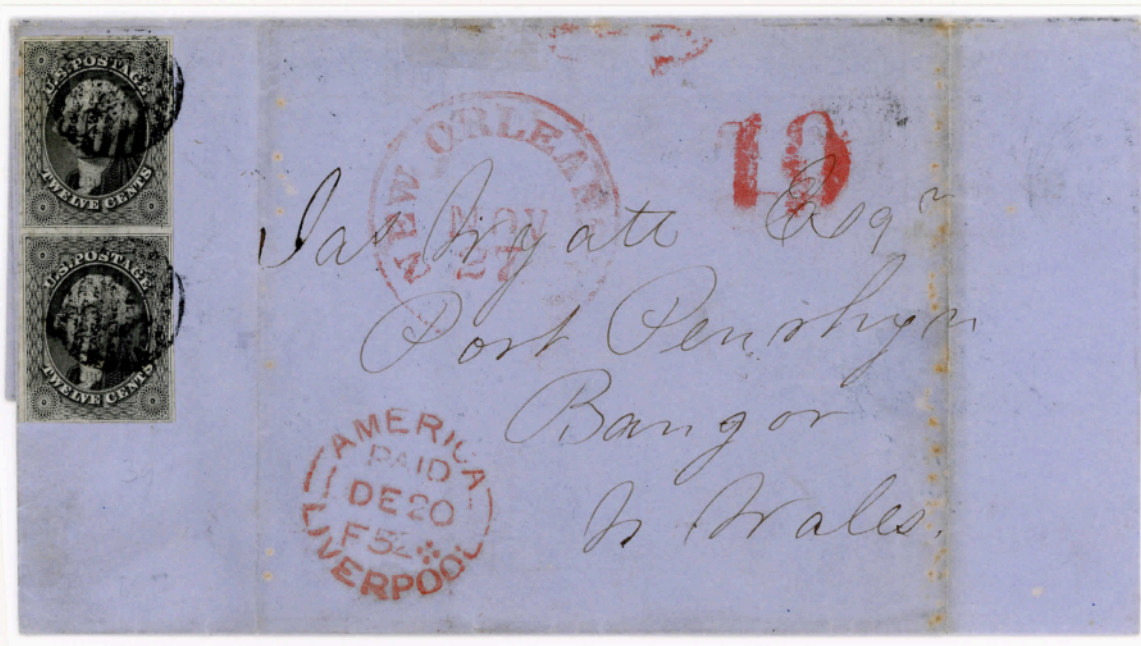 U.S. POSTAGE
TWELVE CENTS
U.S. POSTAGE
TWELVE CENTS
NEW ORLEANS
NOV
27
19
Jas Wyatt Esqr
Port Penrhyn
Bangor
N Wales.
AMERICA
PAID
DE 20
F 52
LIVERPOOL